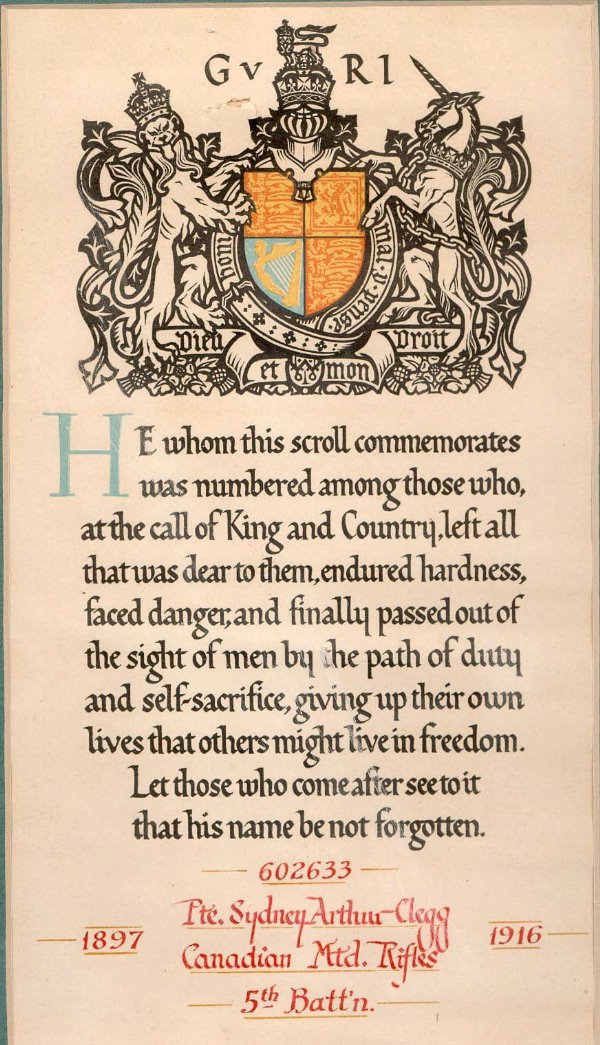 G V R I
Honi mal y pense
Dieu et mon Droit
HE whom this scroll commemorates
was numbered among those who,
at the call of King and Country, left all
that was dear to them, endured hardness,
faced danger, and finally passed out of
the sight of men by the path of duty
and self-sacrifice, giving up their own
lives that others might live in freedom.
Let those who come after see to it
that his name be not forgotten.
602633
Pte. Sydney Arthur Clegg
1897 Canadian Mtd. Rifles 1916
5th Batt'n.